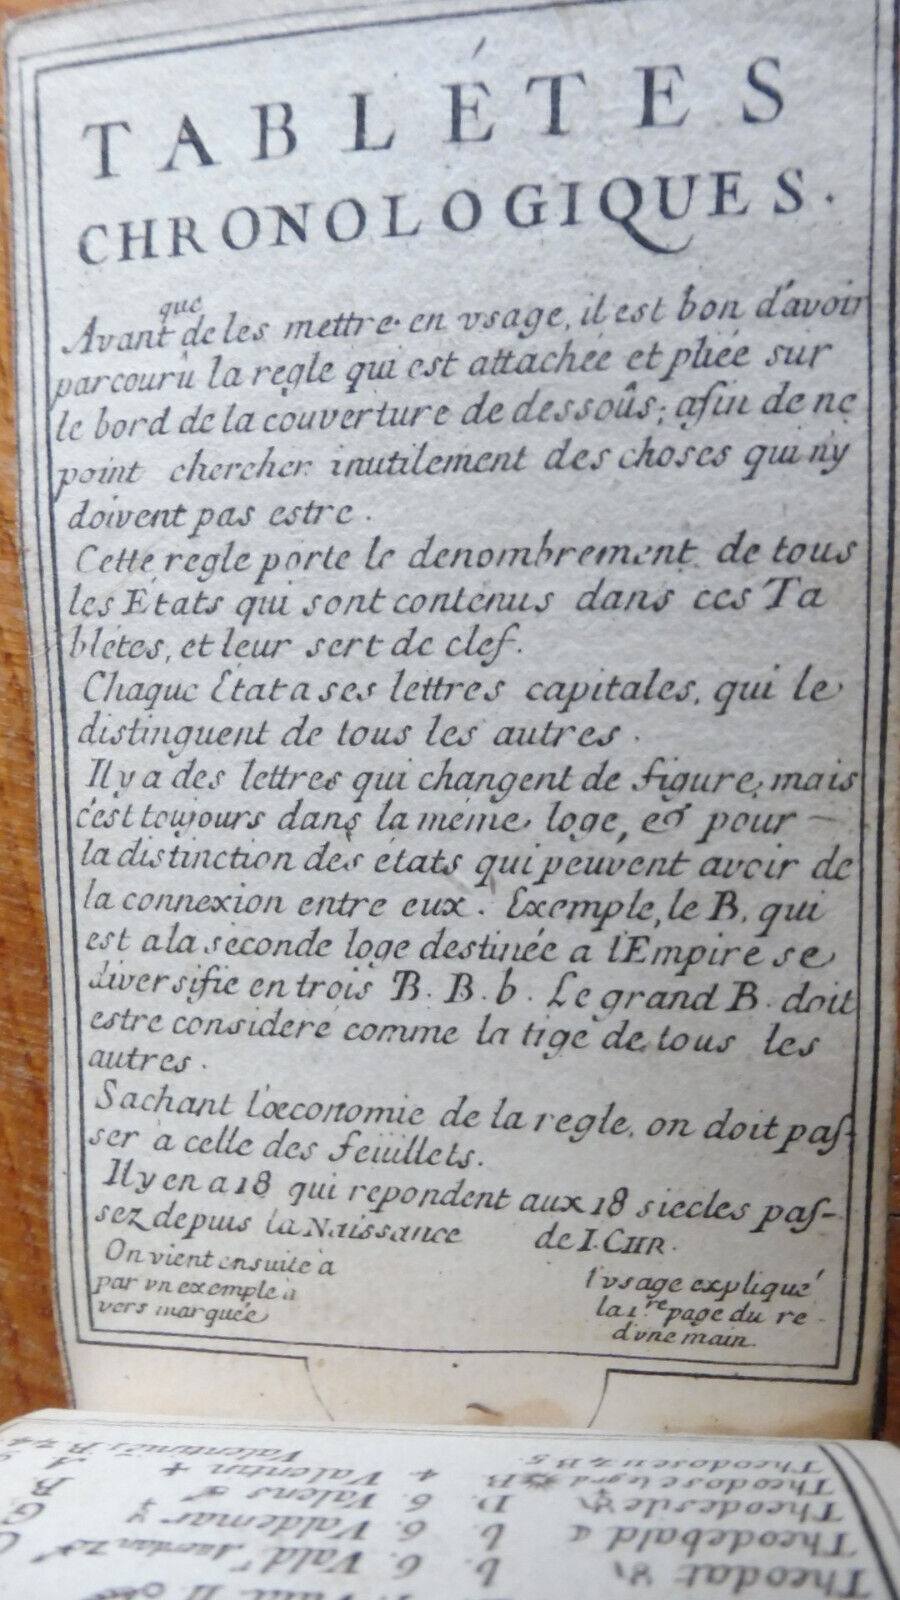 TABLÉTES
CHRONOLOGIQUES.
que
Avant de les mettre en vsage, il est bon d'avoir
parcourû la regle qui est attachée et pliée sur
le bord de la couverture de dessoûs; afin de ne
point chercher inutilement des choses qui n'y
doivent pas estre.
Cette regle porte le denombrement de tous
les États qui sont contenus dans ces Ta
blétes, et leur sert de clef.
Chaque État a ses lettres capitales, qui le
distinguent de tous les autres.
Il y a des lettres qui changent de figure, mais
c'est toujours dans la méme loge, & pour
la distinction des états qui peuvent avoir de
la connexion entre eux. Exemple, le B, qui
est a la seconde loge destinée a l'Empire se
diversifie en trois B. B. b. Le grand B. doit
estre consideré comme la tige de tous les
autres.
Sachant l'œconomie de la regle, on doit pas-
ser à celle des feüillets.
Il y en a 18 qui repondent aux 18 siecles pas-
sez depuis la Naissance de I. CHR.
On vient ensuite à l'vsage expliqué
par vn exemple à la 1.re page du re-
vers marquée d'vne main.
Valentinus B
Theodose II 4 B 5
4 Valentin +
Theodose le grd
6. Valens
Theodes
6. Valdemar
Theodebald
6. Vald.r
Theodat